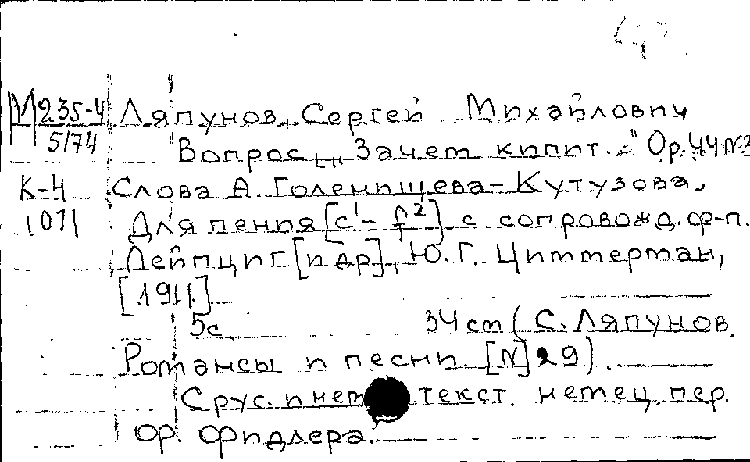 М 235-4 Ляпунов, Сергей Михайлович
5174
Вопрос. [„Зачем кипит..." Ор.44 №3
К-4 Слова А. Голенищева-Кутузова.
1071 Для пения [c¹- f²] с сопровожд. ф-п.
Лейпциг [и др], Ю. Г. Циммерман,
[1911.]
5с 34 cm (С. Ляпунов.
Романсы и песни [N] 29).
С рус. и нем текст. немец. пер.
Ор. Фидлера.